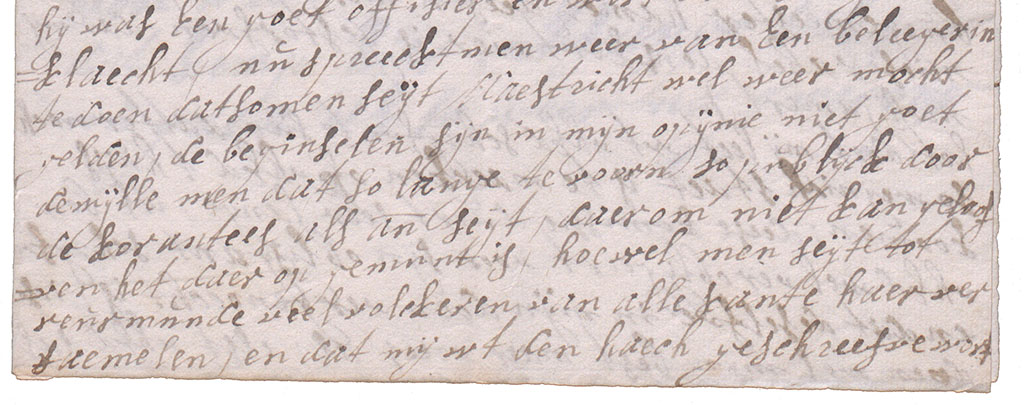 hij was Een goet offisier en
klaecht, nu spreeckt men weer van Een beleegerin
te doen dat somen seijt Maestricht wel weer mocht
gelden, de beginselen sijn in mijn opijnie niet goet
dewijlle men dat so lange te voorn so publijck door
de korantees als an seijt, daerom niet kan geloof
ven het daer op gemunt is, hoewel men seijt tot
reurmunde veel volckeren van alle kante haer ver
saemelen, en dat mij wt den haech geschreefve wort